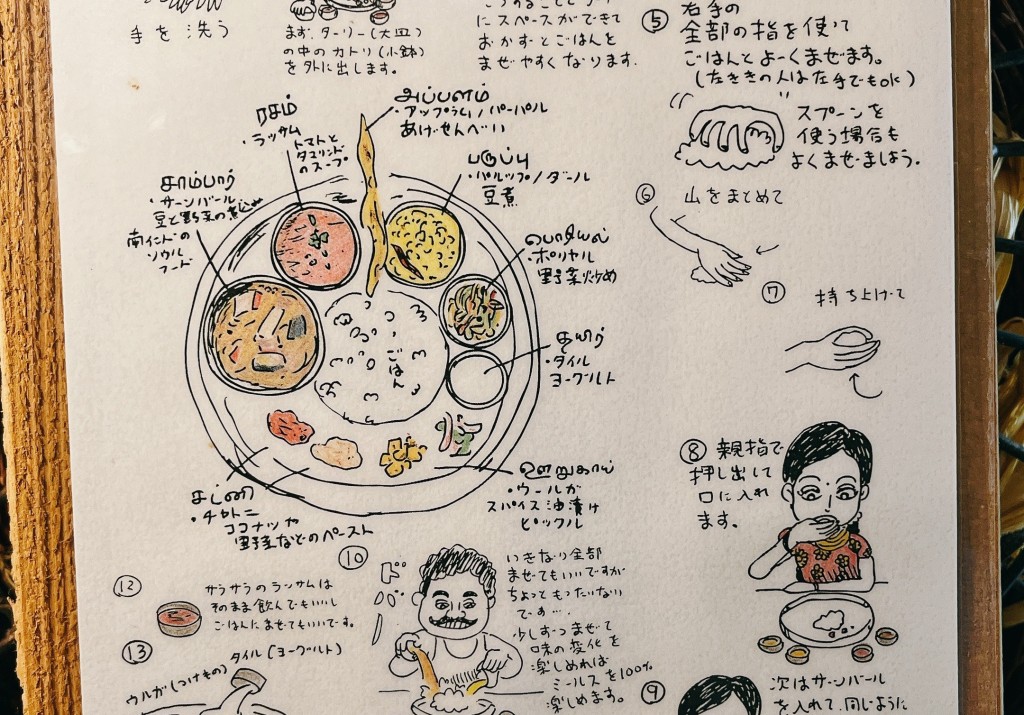 手を洗う
まず、ターリー(大皿)
の中のカトリ(小鉢)
を外に出します。
にスペースができて
おかずとごはんを
まぜやすくなります。
⑤ 右手の
全部の指を使って
ごはんとよーくまぜます。
(左ききの人は左手でもOK)
スプーンを
使う場合も
よくまぜましょう。
⑥ 山をまとめて
⑦ 持ち上げて
⑧ 親指で
押し出して
口に入れ
ます。
அப்பளம்
・アップラム/パーパル
あげせんべい
ரசம்
・ラッサム
トマトと
タマリンド
のスープ
பருப்பு
・パルップ/ダール
豆煮
சாம்பார்
・サーンバール
豆と野菜の煮込み
南インドの
ソウル
フード
பொரியல்
・ポリヤル
野菜炒め
தயிர்
・タイル
ヨーグルト
ごはん
ஊறுகாய்
・ウールガ
スパイス油漬け
ピックル
சட்னி
・チャトニ
ココナツや
野菜などのペースト
⑩ ドバハ
いきなり全部
まぜてもいいですが
ちょっともったいない
です…。
少しずつまぜて
味の変化を
楽しめれば
ミールスを100%
楽しめます。
⑫ サラサラのラッサムは
そのまま飲んでもいいし
ごはんにまぜてもいいです。
⑬ タイル(ヨーグルト)
ウルガ(つけもの)
⑨ 次はサーンバール
を入れて、同じように